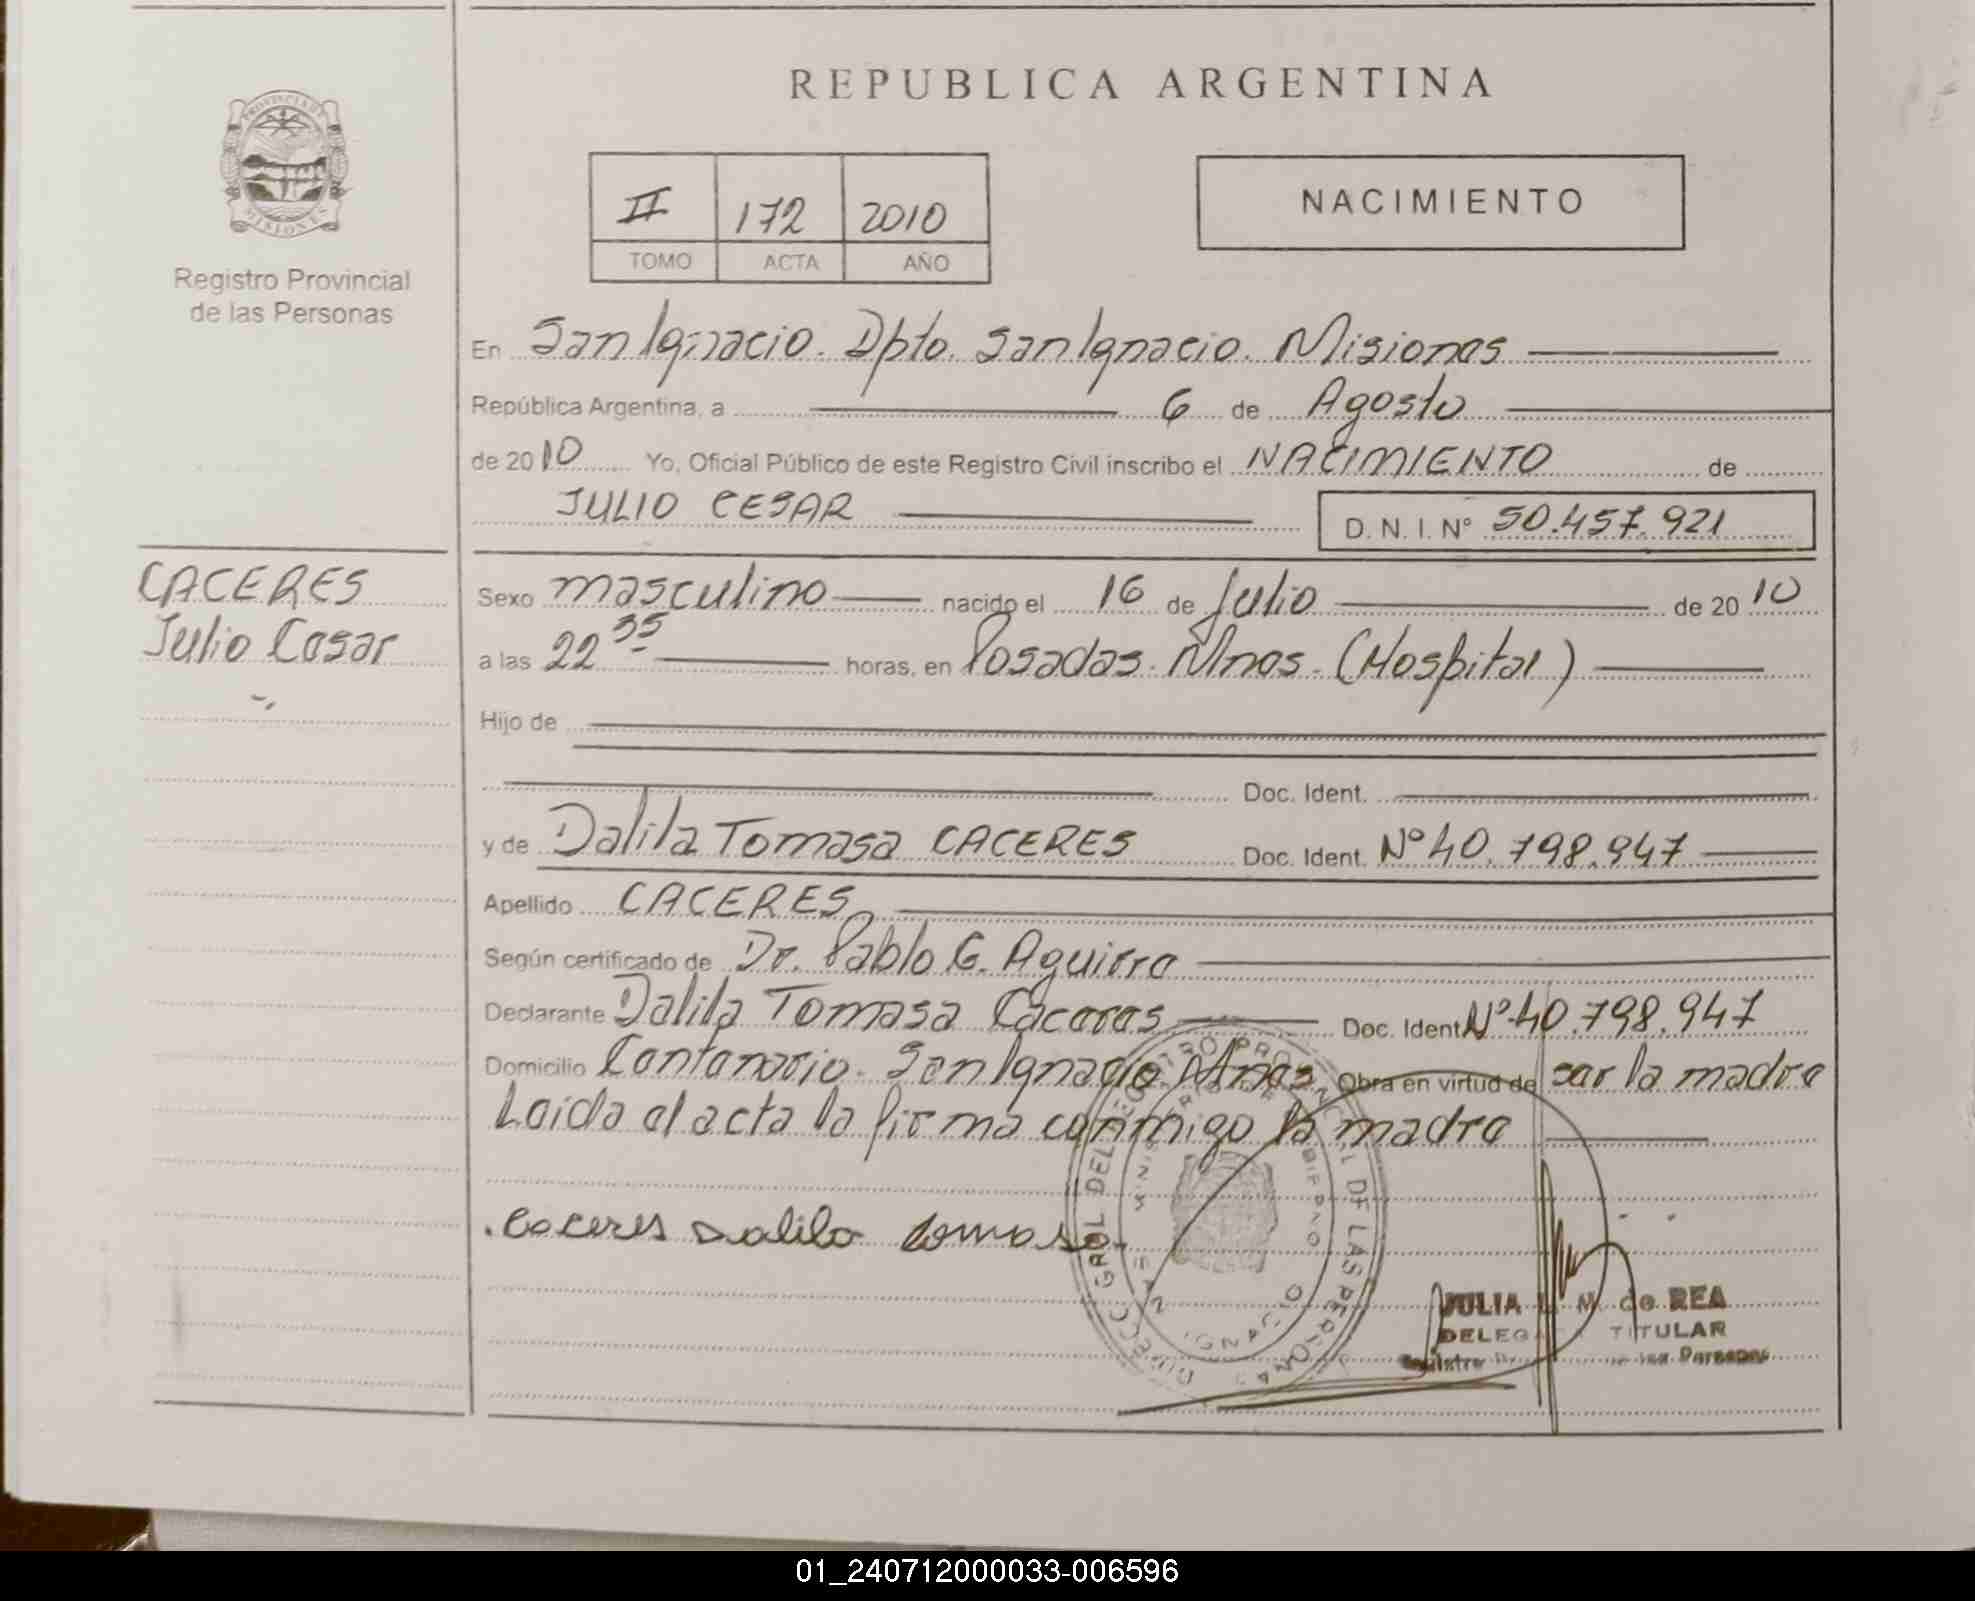 REPUBLICA ARGENTINA
PROVINCIA DE
MISIONES
Registro Provincial
de las Personas
II 172 2010
TOMO ACTA AÑO
NACIMIENTO
En San Ignacio. Dpto. San Ignacio. Misiones
República Argentina, a 6 de Agosto
de 2010 Yo, Oficial Público de este Registro Civil inscribo el NACIMIENTO de
JULIO CESAR D. N. I. Nº 50.457.921
CACERES
Julio Cesar
Sexo masculino nacido el 16 de Julio de 2010
a las 22 35 horas, en Posadas. Mnes. (Hospital)
Hijo de
Doc. Ident.
y de Dalila Tomasa CACERES Doc. Ident. Nº 40.798.947
Apellido CACERES
Según certificado de Dr. Pablo G. Aguirre
Declarante Dalila Tomasa Caceres Doc. Ident. Nº 40.798.947
Domicilio Centenario. San Ignacio Mnes. Obra en virtud de ser la madre
Leida el acta la firma conmigo la madre
Caceres Dalila tomasa
DIRECC GRAL DEL REGISTRO PROVINCIAL DE LAS PERSONAS
SAN IGNACIO
JULIA M. de REA
DELEGADA TITULAR
Registro de las Personas
01_240712000033-006596